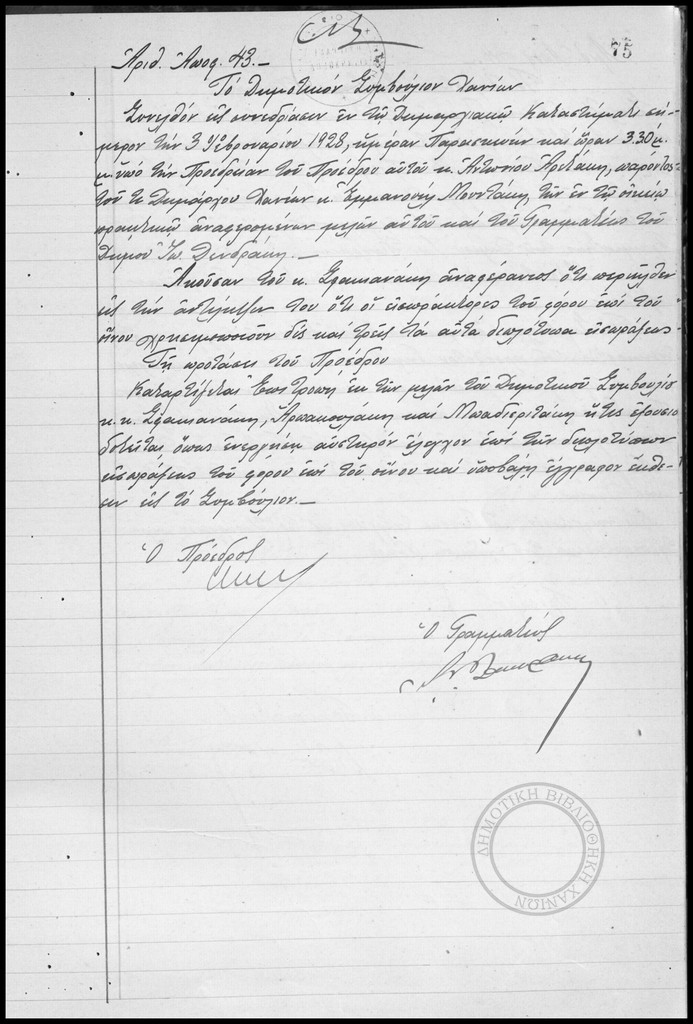 75
Ἀριθ. Ἀποφ. 43.-
Τό Δημοτικόν Συμβούλιον Χανίων
Συνελθόν εἰς συνεδρίασιν ἐν τῷ Δημαρχιακῷ Καταστήματι σή-
μερον τήν 3 Φεβρουαρίου 1928, ἡμέραν Παρασκευήν καί ὥραν 3.30 μ.
μ. ὑπό τήν Προεδρείαν τοῦ Προέδρου αὐτοῦ κ. Ἀντωνίου παρόντος
τοῦ κ. Δημάρχου Χανίων κ. Ἐμμανουήλ Μουντάκη, τῶν ἐν τῷ οἰκείῳ
πρακτικῷ ἀναφερομένων μελῶν αὐτοῦ καί τοῦ Γραμματέως τοῦ
Δήμου Ἰω. Δενδράκη.-
Ἀκοῦσαν τοῦ κ. Σφακιανάκη ἀναφέραντος ὅτι περιῆλθεν
εἰς τήν ἀντίληψιν του ὅτι οἱ εἰσπράκτορες τοῦ φόρου ἐπί τοῦ
οἴνου χρησιμοποιοῦν δίς καί τρίς τά αὐτά διπλότυπα εἰσπράξεως.
Τῇ προτάσει τοῦ Προέδρου
Καταρτίζεται Ἐπιτροπή ἐκ τῶν μελῶν τοῦ Δημοτικοῦ Συμβουλίου
κ.κ. Σφακιανάκη, καί Μπαδιεριτάκη ἥτις ἐξουσιο
δοτεῖται, ὅπως ἐνεργήσῃ αὐστηρόν ἔλεγχον ἐπί τῶν διπλοτύπων
εἰσπράξεως τοῦ φόρου ἐπί τοῦ οἴνου καί ὑποβάλῃ ἔγγραφον ἔκθε-
σιν εἰς τό Συμβούλιον.-
Ὁ Πρόεδρος
Ὁ Γραμματεύς
ΔΗΜΟΤΙΚΗ ΒΙΒΛΙΟΘΗΚΗ ΧΑΝΙΩΝ